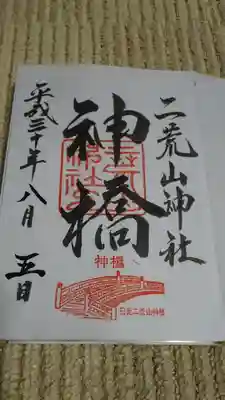 二荒山神社
神橋
平成三十年八月五日
神橋
日光二荒山神社